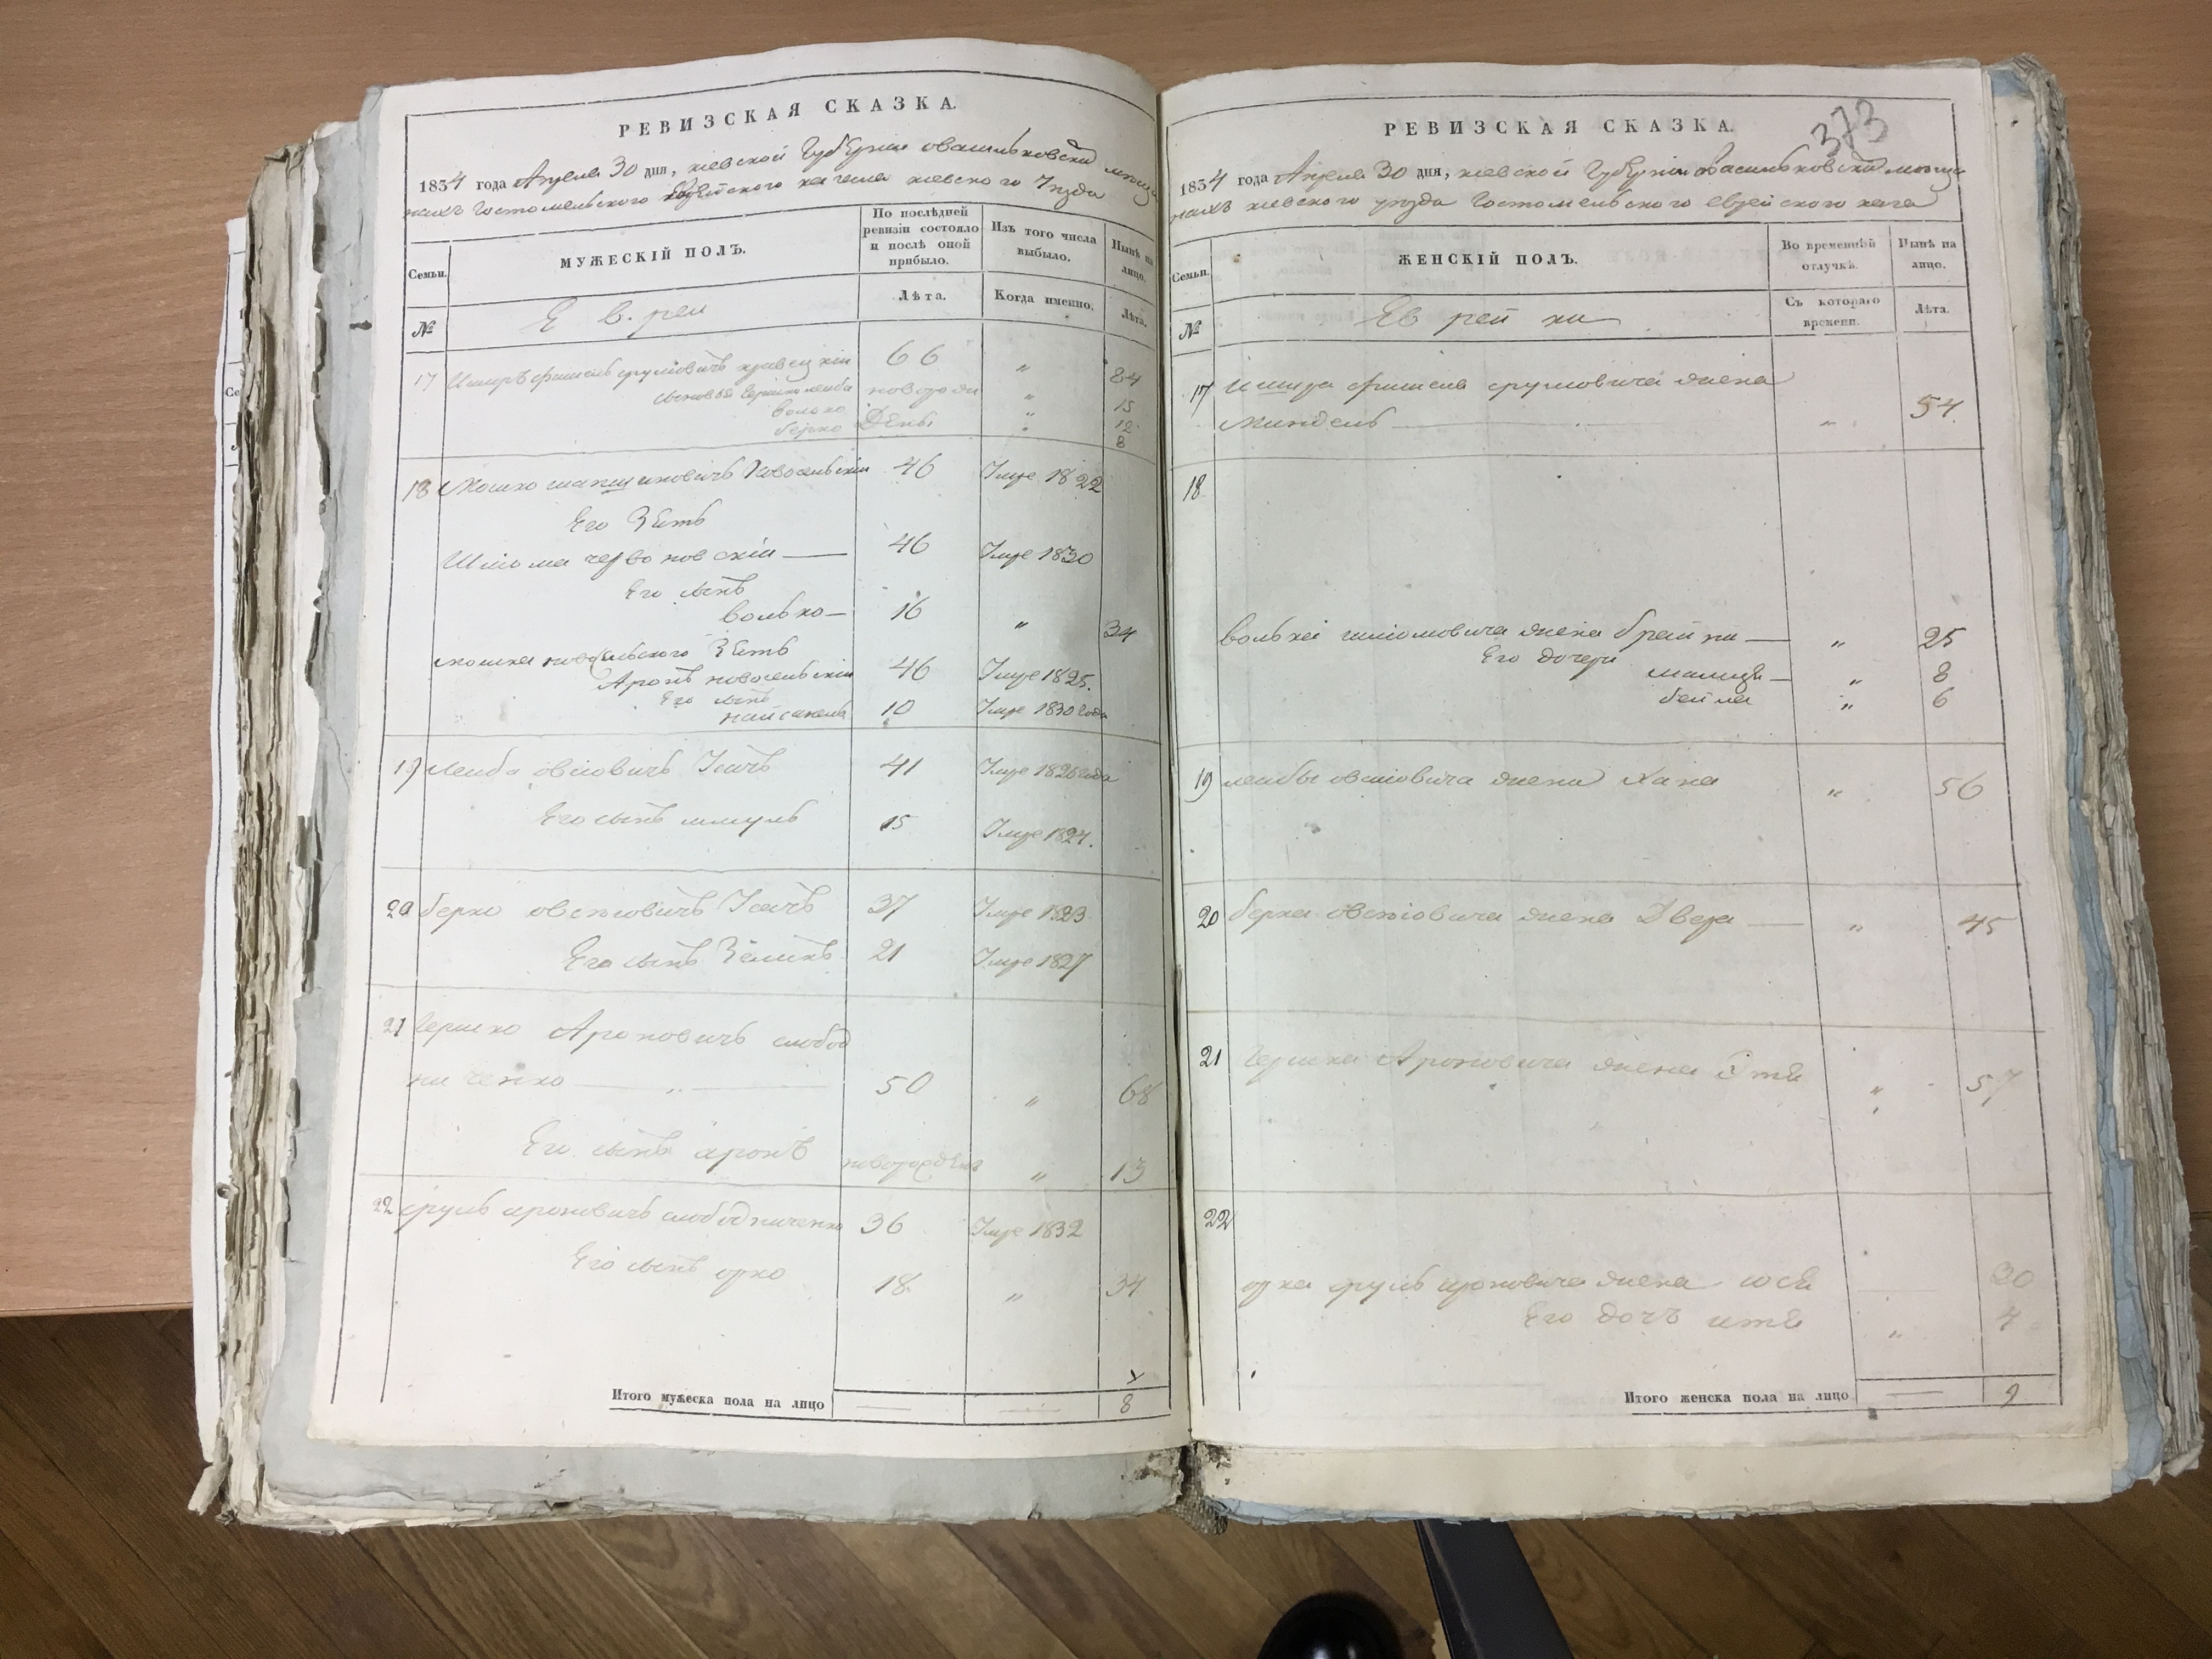 РЕВИЗСКАЯ СКАЗКА.
1834 года Апреля 30 дня, киевской Губернии
Гостомельского киевского
Семьи.
МУЖЕСКІЙ ПОЛЪ.
По послѣдней ревизіи состояло и послѣ оной прибыло.
Изъ того числа выбыло.
Нынѣ на лицо.
№
Евреи
Лѣта.
Когда именно.
Лѣта.
17 фишель срулювичъ 66 " 84
сыновья новорож " 15
волько дены " 12
берко " 8
18 Мошко Новосельскіи 46 Умре 1822
Его Зеть
Шліома червоновскіи — 46 Умре 1830
Его сынъ
волько — 16 " 34
мошка новосельского Зеть
Аронъ новосельскіи 46 Умре 1825.
Его сынъ
10 Умре 1830 года
19 Леиба овсіовичъ 41 Умре 1826 года
Его сынъ шмуль 15 Умре 1824.
20 берко овсіовичъ 37 Умре 1823
Его сынъ Зеликъ 21 Умре 1827
21 Гершко Ароновичъ слобод
ниченко — " — 50 " 68
Его сынъ аронъ новорожденъ " 13
22 сруль ароновичъ слободниченко 36 Умре 1832
Его сынъ 18 " 34
Итого мужеска пола на лицо 8
373
РЕВИЗСКАЯ СКАЗКА.
1834 года Апреля 30 дня, киевской Губернии
киевского уезда Гостомельского еврейского кага
Семьи.
ЖЕНСКІЙ ПОЛЪ.
Во временнѣй отлучкѣ.
Нынѣ на лицо.
№
Еврейки
Съ котораго времени.
Лѣта.
17 фишеля срулювича жена
миндель — " 54.
18
волька шліомовича жена брайна — " 25
Его дочери малица — " 8
бейла " 6
19 леибы овсіовича жена Хана " 56
20 берка овсіовича жена Двера — " 45
21 Гершка Ароновича жена Этя " 57
22
сруль ароновича жена юся 30
Его дочъ итя " 4
Итого женска пола на лицо 9